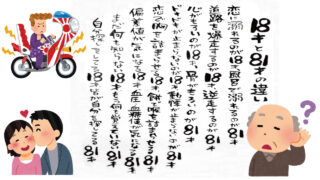 18才と81才の違い
恋に溺れるのが18才風呂で溺れるのが81才
道路を爆走するのが18才逆走するのが81才
心がもろいのが18才骨がもろいのが81才
ドキドキが止まらないのが18才動悸が止まらないのが81才
恋で胸を詰まらせる18才餅で喉を詰まらせる81才
偏差値が気になる18才血圧血糖値が気になる81才
まだ何も知らない18才もう何も覚えていない81才
自分探しをしてる18才皆が自分を探してる81才